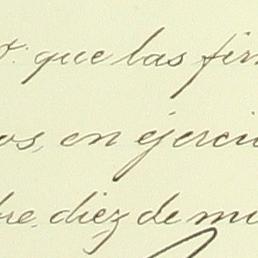 que las fir
os, en ejerci
bre, diez de mi